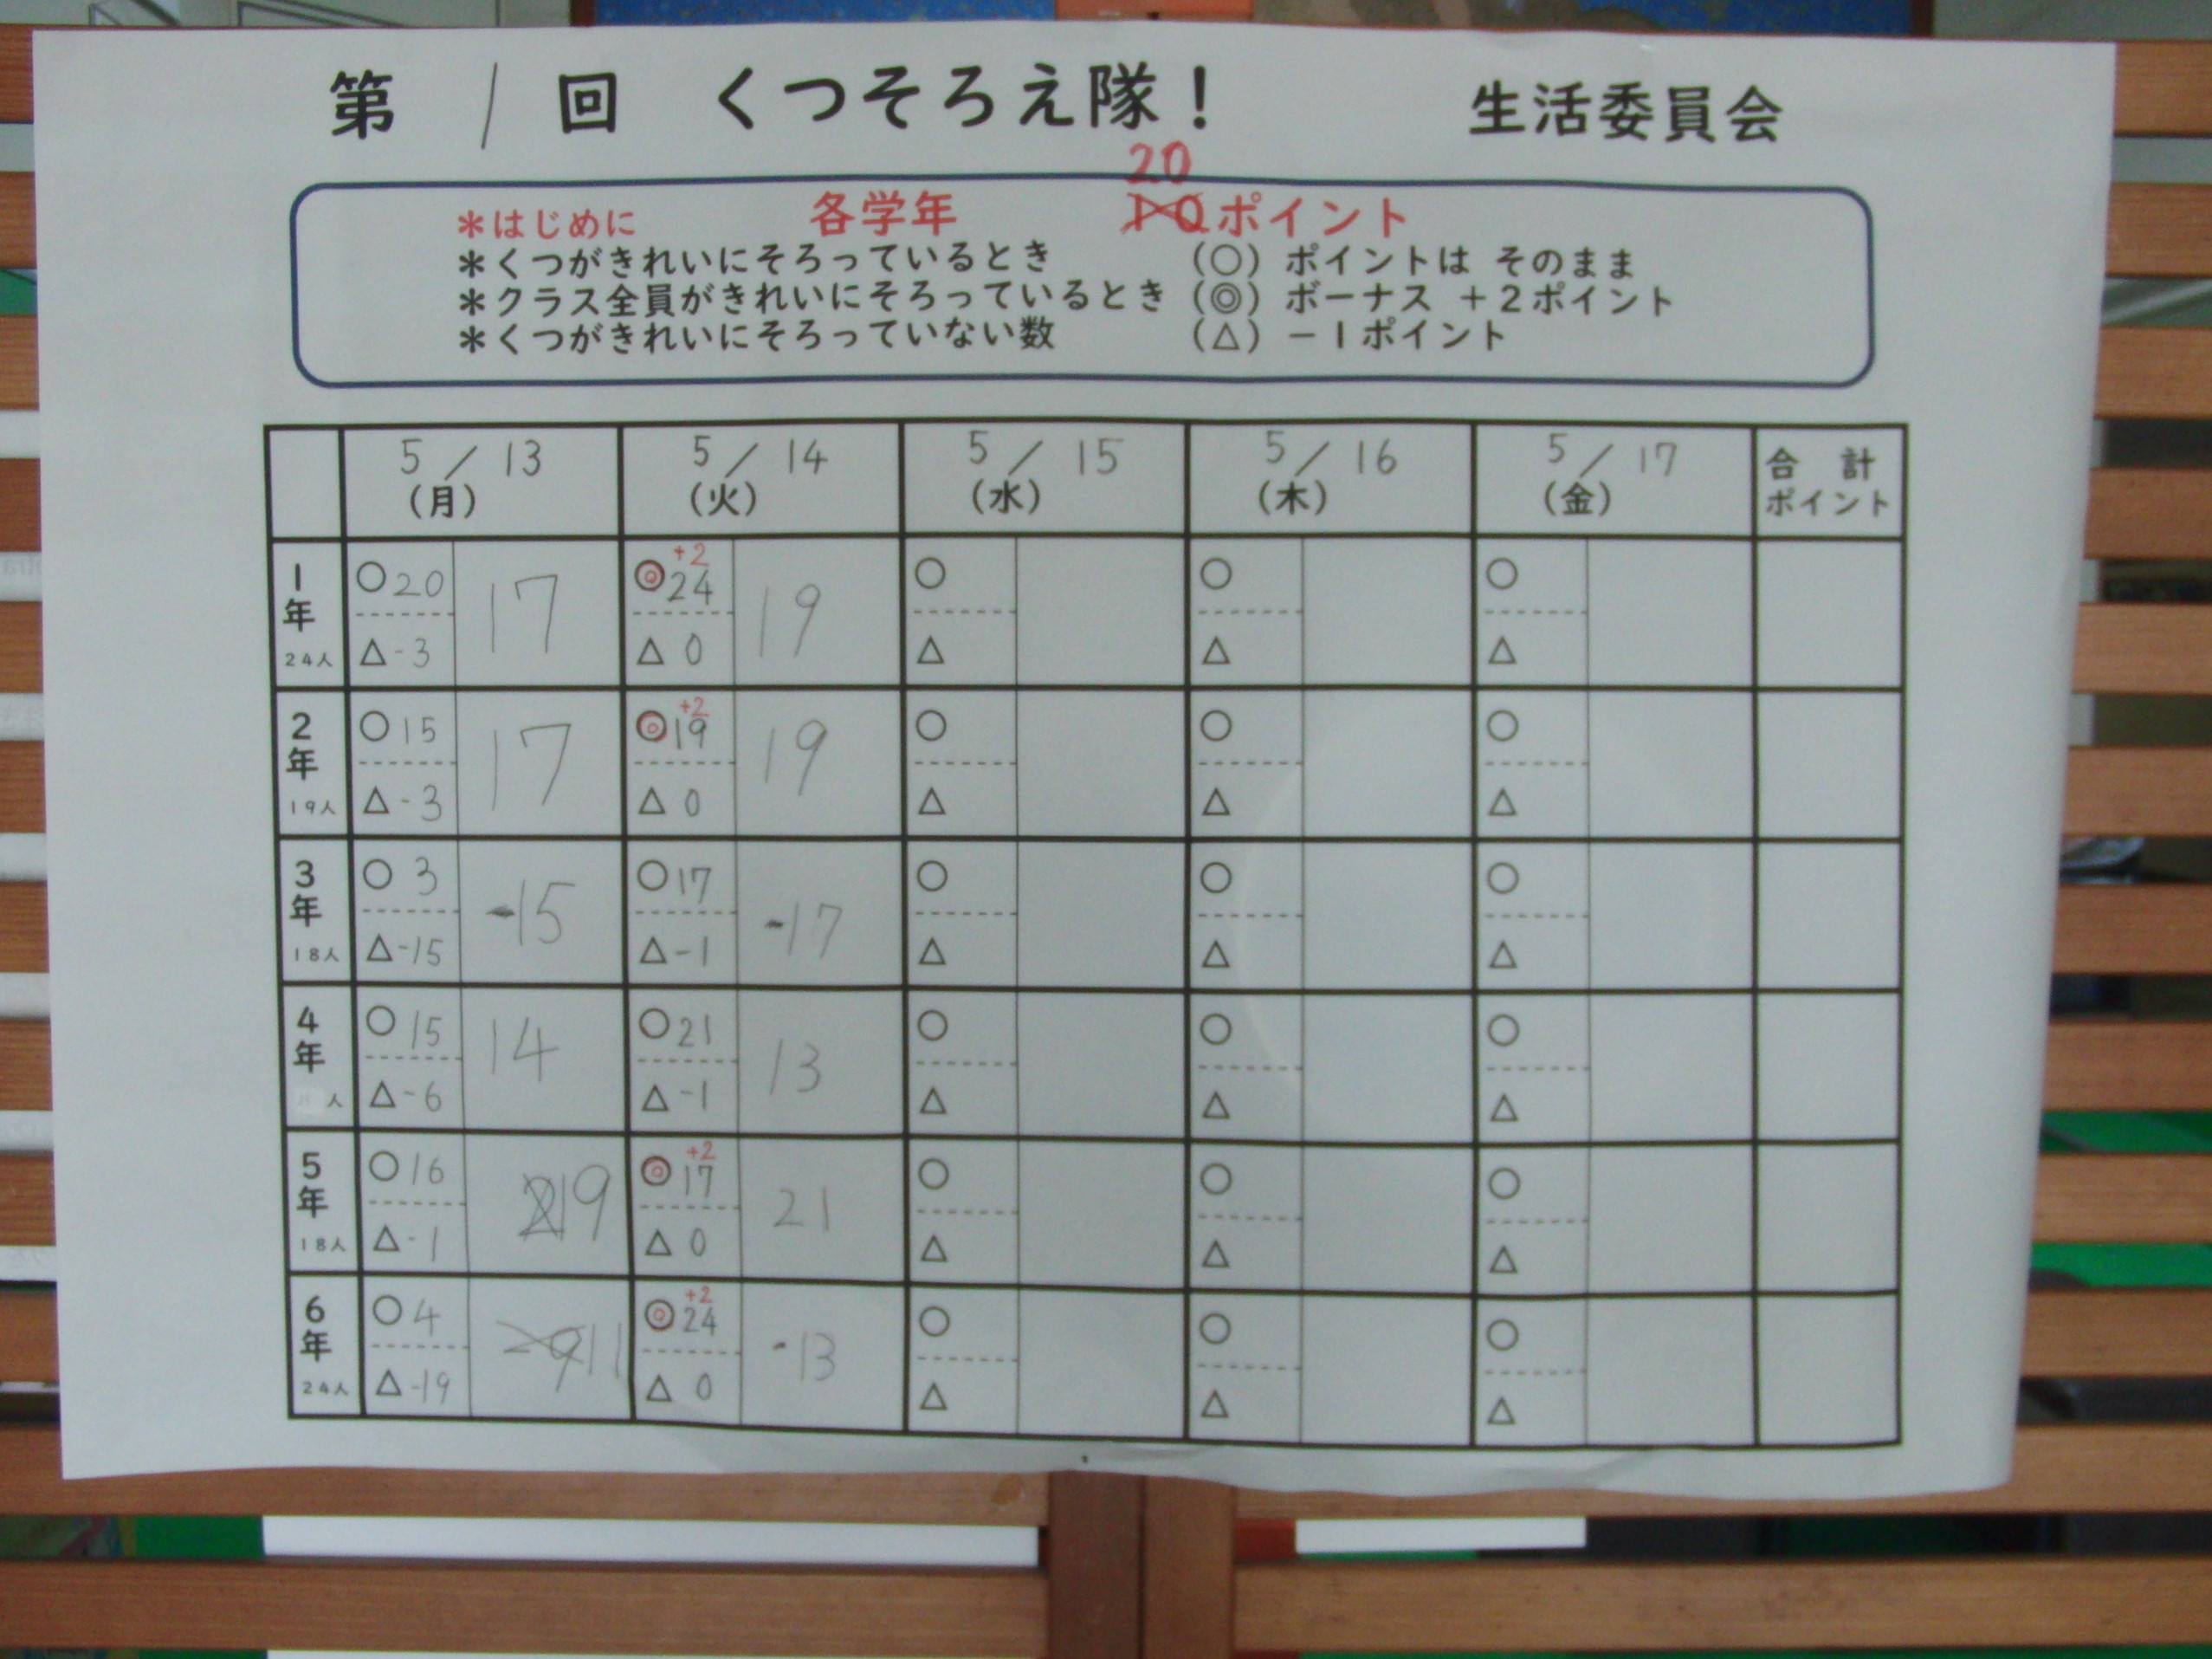 第 1 回 くつそろえ隊! 生活委員会
20
*はじめに 各学年 10ポイント
*くつがきれいにそろっているとき (○) ポイントは そのまま
*クラス全員がきれいにそろっているとき (◎) ボーナス +2ポイント
*くつがきれいにそろっていない数 (△) -1ポイント
5/13 5/14 5/15 5/16 5/17 合 計
(月) (火) (水) (木) (金) ポイント
+2
1年 ○20 17 ◎24 19 ○ ○ ○
24人 △-3 △0 △ △ △
+2
2年 ○15 17 ◎19 19 ○ ○ ○
19人 △-3 △0 △ △ △
3年 ○3 -15 ○17 -17 ○ ○ ○
18人 △-15 △-1 △ △ △
4年 ○15 14 ○21 13 ○ ○ ○
人 △-6 △-1 △ △ △
+2
5年 ○16 19 ◎17 21 ○ ○ ○
18人 △-1 △0 △ △ △
+2
6年 ○4 11 ◎24 -13 ○ ○ ○
24人 △-19 △0 △ △ △